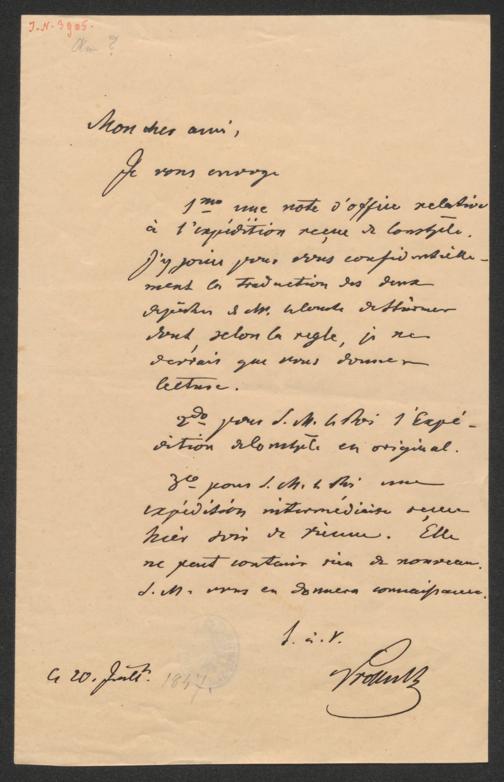 J.-N. 3905.
Mon cher ami,
Je vous envoye
1mo une note d'office relative
à l'expédition reçue de Constple.
J'y joins pour vous confidentielle-
ment la traduction des deux
dépêches de M. le Comte de Stürmer
dont, selon la regle, je ne
devrais que vous donner
lecture.
2do pour S. M. le Roi l'Expé-
dition de Constple en original.
3tio pour S. M. le Roi une
expédition intermédiaire reçue
hier soir de Vienne. Elle
ne peut contenir rien de nouveau.
S. M. vous en donnera connaissance.
t. à. v.
Prokesch
le 20. 1847.